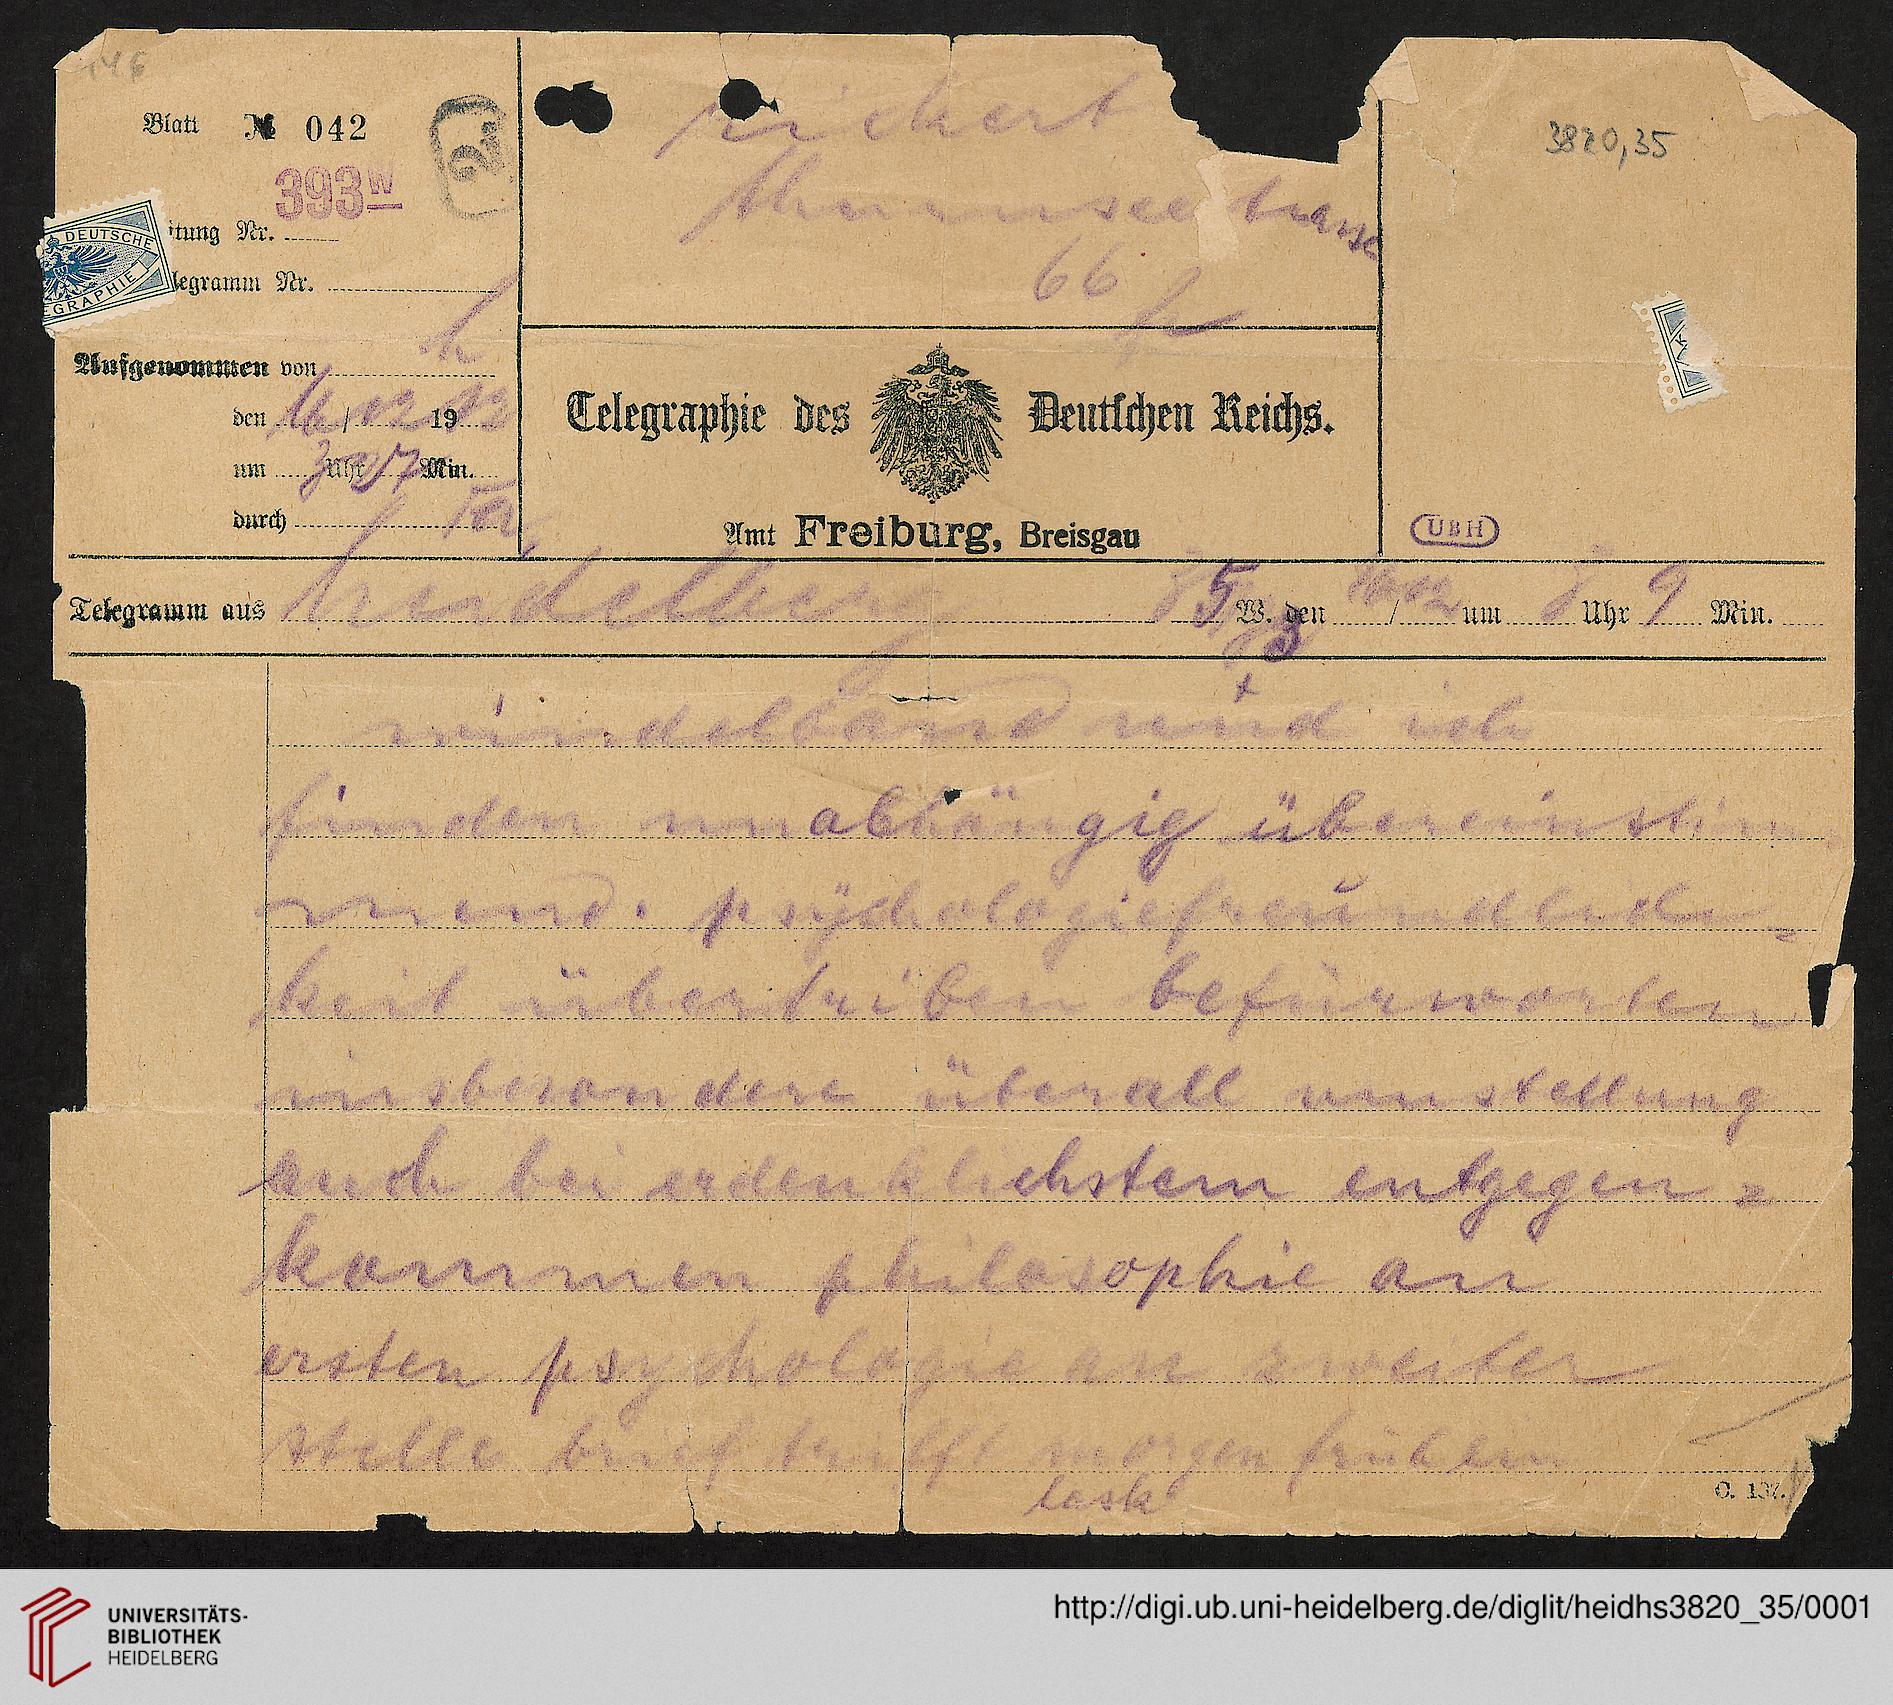 146
Blatt № 042
393W
Leitung Nr.
Telegramm Nr.
DEUTSCHE
EGRAPHIE
rickert
thurnseestrasse
66 fr
3820,35
Aufgenommen von h
den 16/12 1912
um 3 Uhr 27 Min.
durch
Telegraphie des Deutschen Reichs.
Amt Freiburg, Breisgau
UBH
Telegramm aus heidelberg 35 W. den 16/12 um 3 Uhr 9 Min.
windelband und ich
finden unabhängig übereinstim
mend. psychologiefreundlich-
keit übertriben befürworten
insbesondere überall umstellung
auch bei erdenklichstem entgegen=
kommen philosophie an
ersten psychologie an zweiter
stelle brief trifft morgen früh ein
lask
C. 137.
UNIVERSITÄTS-
BIBLIOTHEK
HEIDELBERG
http://digi.ub.uni-heidelberg.de/diglit/heidhs3820_35/0001